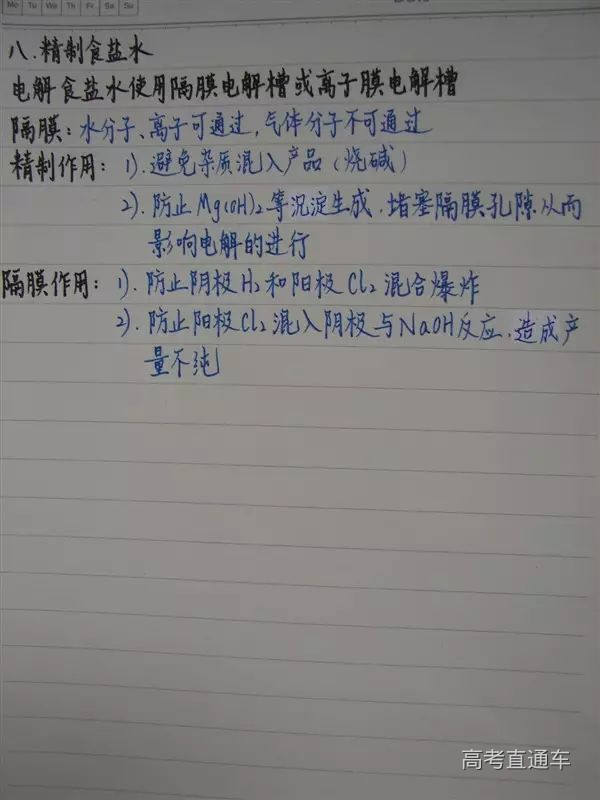 Mo Tu We Th Fr Sa Su
八.精制食盐水
电解食盐水使用隔膜电解槽或离子膜电解槽
隔膜:水分子、离子可通过,气体分子不可通过
精制作用:1).避免杂质混入产品(烧碱)
2).防止Mg(OH)₂等沉淀生成,堵塞隔膜孔隙从而
影响电解的进行
隔膜作用:1).防止阴极H₂和阳极Cl₂混合爆炸
2).防止阳极Cl₂混入阴极与NaOH反应,造成产
量不纯
高考直通车